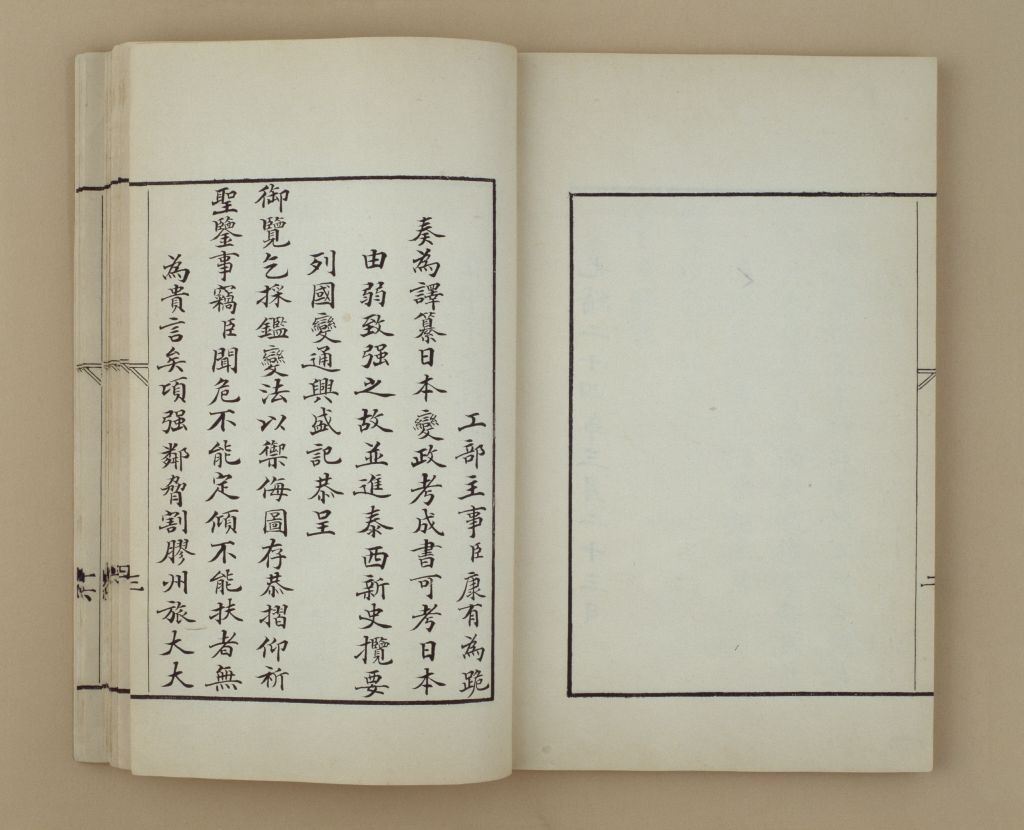 工部主事臣康有為跪
奏為譯纂日本變政考成書可考日本
由弱致强之故並進泰西新史攬要
列國變通興盛記恭呈
御覽乞採鑑變法以禦侮圖存恭摺仰祈
聖鑒事竊臣聞危不能定傾不能扶者無
為貴言矣頃强鄰脅割膠州旅大大
三
二